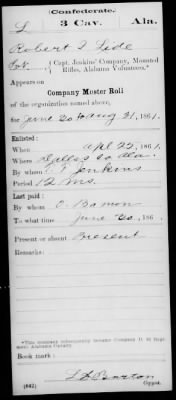 Confederate.
L 3 Cav. Ala.
Robert Lide
Capt. Jenkins' Company, Mounted
Rifles, Alabama Volunteers.*
Appears on
Company Muster Roll
of the organization named above,
for June 20 to Aug 31, 1861.
Enlisted:
When Apl 22, 1861.
Where Dallas Co Ala.
By whom Jenkins
Period 12 ms.
Last paid:
By whom
To what time June 20, 186 .
Present or absent Present
Remarks:
*This company subsequently became Company
ment Alabama Cavalry.
Book mark:
(642) Barton
Copyist.